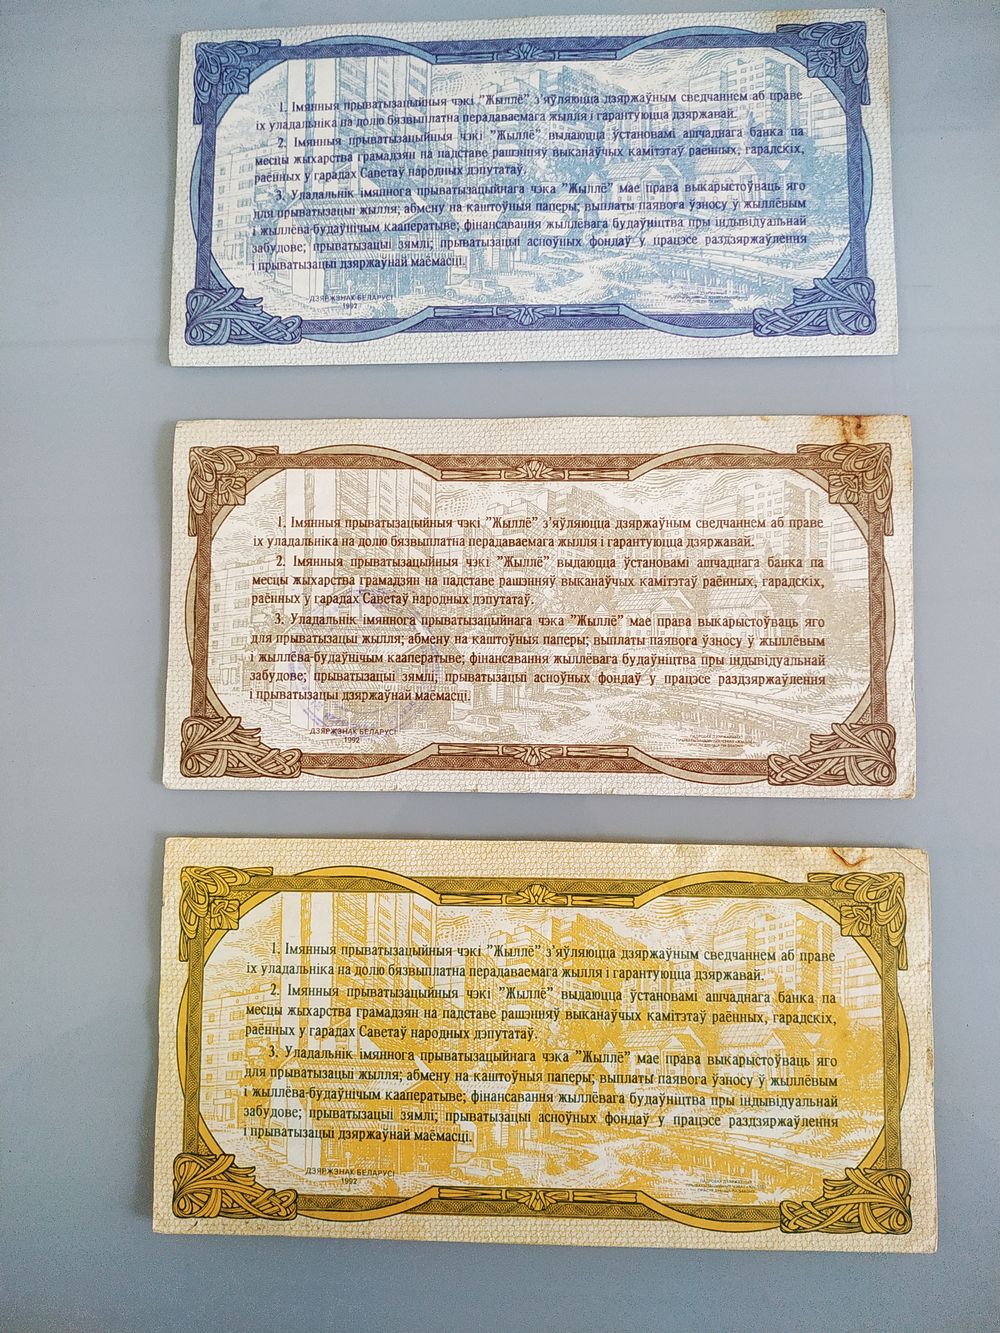 1. Імянныя прыватызацыйныя чэкі "Жыллё" з'яўляюцца дзяржаўным сведчаннем аб праве
іх уладальніка на долю бязвыплатна перадаваемага жылля і гарантуюцца дзяржавай.
2. Імянныя прыватызацыйныя чэкі "Жыллё" выдаюцца ўстановамі ашчаднага банка па
месцы жыхарства грамадзян на падставе рашэнняў выканаўчых камітэтаў раённых, гарадскіх,
раённых у гарадах Саветаў народных дэпутатаў.
3. Уладальнік імяннога прыватызацыйнага чэка "Жыллё" мае права выкарыстоўваць яго
для прыватызацыі жылля; абмену на каштоўныя паперы; выплаты паявога ўзносу ў жыллёвым
і жыллёва-будаўнічым кааператыве; фінансавання жыллёвага будаўніцтва пры індывідуальнай
забудове; прыватызацыі зямлі; прыватызацыі асноўных фондаў у працэсе раздзяржаўлення
і прыватызацыі дзяржаўнай маёмасці.
ДЗЯРЖЗНАК БЕЛАРУСІ
1992
1. Імянныя прыватызацыйныя чэкі "Жыллё" з'яўляюцца дзяржаўным сведчаннем аб праве
іх уладальніка на долю бязвыплатна перадаваемага жылля і гарантуюцца дзяржавай.
2. Імянныя прыватызацыйныя чэкі "Жыллё" выдаюцца ўстановамі ашчаднага банка па
месцы жыхарства грамадзян на падставе рашэнняў выканаўчых камітэтаў раённых, гарадскіх,
раённых у гарадах Саветаў народных дэпутатаў.
3. Уладальнік імяннога прыватызацыйнага чэка "Жыллё" мае права выкарыстоўваць яго
для прыватызацыі жылля; абмену на каштоўныя паперы; выплаты паявога ўзносу ў жыллёвым
і жыллёва-будаўнічым кааператыве; фінансавання жыллёвага будаўніцтва пры індывідуальнай
забудове; прыватызацыі зямлі; прыватызацыі асноўных фондаў у працэсе раздзяржаўлення
і прыватызацыі дзяржаўнай маёмасці.
ДЗЯРЖЗНАК БЕЛАРУСІ
1992
1. Імянныя прыватызацыйныя чэкі "Жыллё" з'яўляюцца дзяржаўным сведчаннем аб праве
іх уладальніка на долю бязвыплатна перадаваемага жылля і гарантуюцца дзяржавай.
2. Імянныя прыватызацыйныя чэкі "Жыллё" выдаюцца ўстановамі ашчаднага банка па
месцы жыхарства грамадзян на падставе рашэнняў выканаўчых камітэтаў раённых, гарадскіх,
раённых у гарадах Саветаў народных дэпутатаў.
3. Уладальнік імяннога прыватызацыйнага чэка "Жыллё" мае права выкарыстоўваць яго
для прыватызацыі жылля; абмену на каштоўныя паперы; выплаты паявога ўзносу ў жыллёвым
і жыллёва-будаўнічым кааператыве; фінансавання жыллёвага будаўніцтва пры індывідуальнай
забудове; прыватызацыі зямлі; прыватызацыі асноўных фондаў у працэсе раздзяржаўлення
і прыватызацыі дзяржаўнай маёмасці.
ДЗЯРЖЗНАК БЕЛАРУСІ
1992